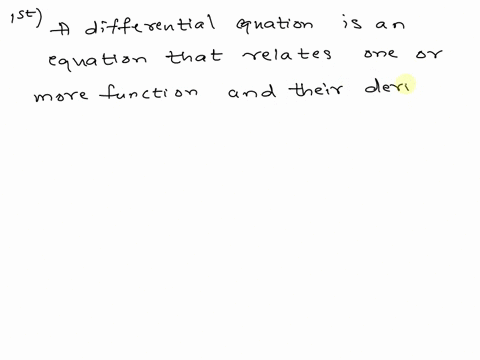 1st) A differential equation is an
equation that relates one or
more function and their deri